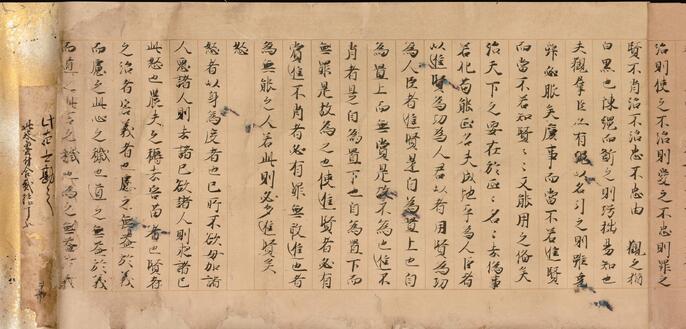 治則使之不治則愛之不忠則罪之
賢不肖治不治忠不忠由觀之猶
白黑也陳繩而斲之則巧拙易知也
夫觀群臣亦有繩以名引之則雖堯
舜必服矣慮事而當不若進賢
而當不若知賢〻〻又能用之備矣
治天下之要在於正〻名〻去偽事
若化苟能正名天成地平為人臣者
以進賢為功為人君以者用賢為功
為人臣者進賢是自為置上也自
為置上而無賞是故不為也進不
肖者是自為置下也自為置下而
無罪是故為之也使進賢者必有
賞進不肖者必有罪無敢進也者
為無能之人若此則必多進賢矣
恕
恕者以身為度者也己所不欲毋加諸
人惡諸人則去諸己欲諸人則求諸己
此恕也農夫之耨去害苗者也賢者
之治者害義者也慮之無益於義
而慮之此心之穢也道之無益於義
而道之此言之穢也為之無益於義